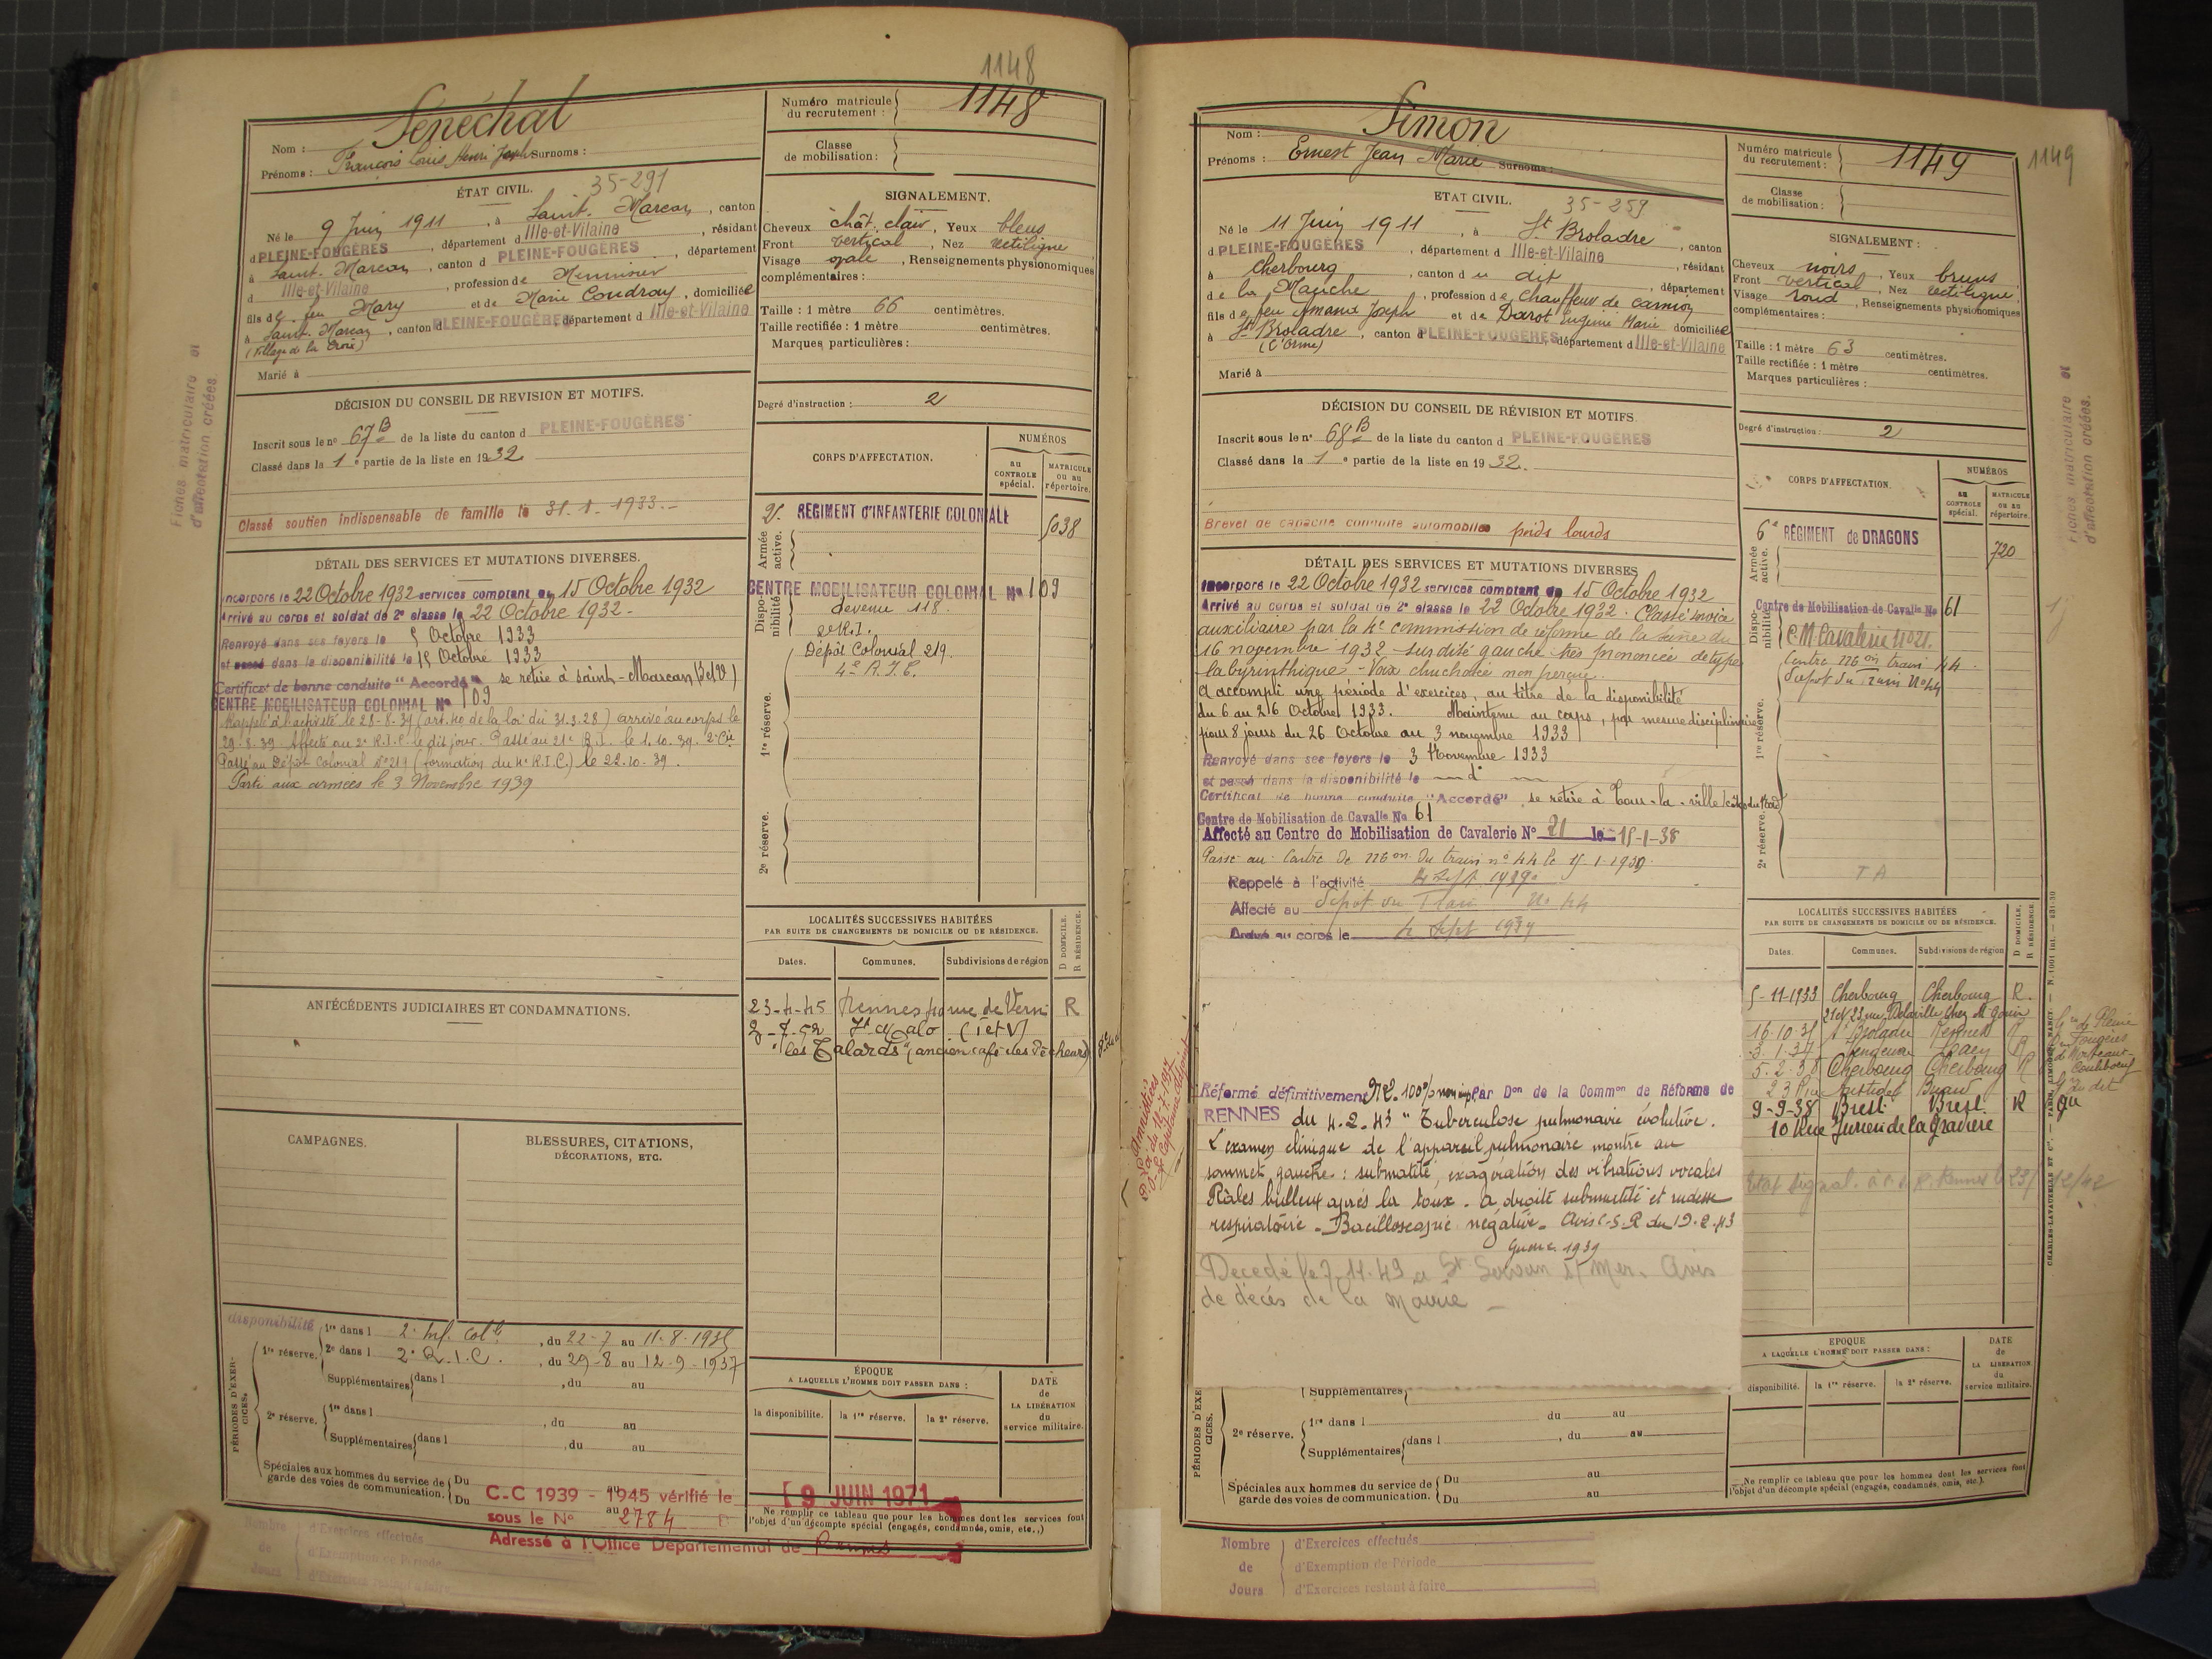 1148
Nom : Sénéchal
Prénoms : François Louis Henri Joseph Surnoms :
Numéro matricule du recrutement : 1148
Classe de mobilisation :
ÉTAT CIVIL. 35-291
Né le 9 Juin 1911, à Saint-Marcan, canton
d PLEINE-FOUGÈRES, département d Ille-et-Vilaine, résidant
à Saint-Marcan, canton d PLEINE-FOUGÈRES, département
d Ille-et-Vilaine, profession de Menuisier
fils de feu Mary et de Marie Coudray, domiciliée
à Saint-Marcan, canton d PLEINE-FOUGÈRES département d Ille-et-Vilaine
(Village de la Croix)
Marié à
SIGNALEMENT.
Cheveux chât. clair, Yeux bleus
Front vertical, Nez rectiligne
Visage ovale, Renseignements physionomiques
complémentaires :
Taille : 1 mètre 66 centimètres.
Taille rectifiée : 1 mètre centimètres.
Marques particulières :
Degré d'instruction : 2
DÉCISION DU CONSEIL DE REVISION ET MOTIFS.
Inscrit sous le no 67 B de la liste du canton d PLEINE-FOUGÈRES
Classé dans la 1e partie de la liste en 1932
Classé soutien indispensable de famille le 31.1.1933.-
CORPS D'AFFECTATION.
NUMÉROS
au CONTROLE spécial.
MATRICULE ou au répertoire.
Armée active.
2e RÉGIMENT d'INFANTERIE COLONIALE 5038
Disponibilité
CENTRE MOBILISATEUR COLONIAL No 109
devenu 118.
2e R.I.
Dépôt Colonial 219.
1re réserve.
2e réserve.
DÉTAIL DES SERVICES ET MUTATIONS DIVERSES.
Incorporé le 22 Octobre 1932 services comptant du 15 Octobre 1932
Arrivé au corps et soldat de 2e classe le 22 Octobre 1932.
Renvoyé dans ses foyers le 15 Octobre 1933
et passé dans la disponibilité le 15 Octobre 1933
Certificat de bonne conduite "Accordé" se retire à Saint-Marcan (I et V)
CENTRE MOBILISATEUR COLONIAL No 109
Rappelé à l'activité le 28-8-39 (art. 40 de la loi du 31.3.28) arrivé au corps le
29.8.39. Affecté au 2e R.I.C. le dit jour. Passé au 21e R.I. le 1.10.39. 2e Cie
Passé au Dépôt Colonial No 219 (formation du 4e R.I.C.) le 22.10.39.
Parti aux armées le 3 Novembre 1939
LOCALITÉS SUCCESSIVES HABITÉES
PAR SUITE DE CHANGEMENTS DE DOMICILE OU DE RÉSIDENCE.
Dates. Communes. Subdivisions de région D DOMICILE. R RÉSIDENCE.
23-4-45 Rennes rue de Vern R
2-7-52 St Malo (I et V)
"les Talards" (ancien café des Pêcheurs)
ANTÉCÉDENTS JUDICIAIRES ET CONDAMNATIONS.
CAMPAGNES.
BLESSURES, CITATIONS, DÉCORATIONS, ETC.
PÉRIODES D'EXERCICES.
disponibilité
1re réserve. 1re dans l 2e Inf. Colle, du 22-7 au 11-8-1935
2e dans l 2e R.I.C., du 29-8 au 12-9-1937
Supplémentaires dans l , du au
2e réserve. 1re dans l , du au
Supplémentaires dans l , du au
Spéciales aux hommes du service de garde des voies de communication. Du au
Du au
ÉPOQUE
A LAQUELLE L'HOMME DOIT PASSER DANS :
la disponibilité. la 1re réserve. la 2e réserve.
DATE de LA LIBÉRATION du service militaire.
C-C 1939 - 1945 vérifié le 9 JUIN 1971
sous le No 2784
Adressé à l'Office Départemental de Rennes
Ne remplir ce tableau que pour les hommes dont les services font
l'objet d'un décompte spécial (engagés, condamnés, omis, etc.,)
Nombre de Jours
d'Exercices effectués
d'Exemption de Période
d'Exercices restant à faire
Fiches matriculaire et
d'affectation créées.
Nom : Simon
Prénoms : Ernest Jean Marie Surnoms :
Numéro matricule du recrutement : 1149
1149
Classe de mobilisation :
ETAT CIVIL. 35-259
Né le 11 Juin 1911, à St Broladre, canton
d PLEINE-FOUGÈRES, département d Ille-et-Vilaine, résidant
à Cherbourg, canton d u dit, département
de la Manche, profession de chauffeur de camion
fils de feu Amand Joseph et de Darot Eugénie Marie domiciliée
à St Broladre, canton d PLEINE-FOUGÈRES, département d Ille-et-Vilaine
(L'Orme)
Marié à
SIGNALEMENT :
Cheveux noirs, Yeux bruns
Front vertical, Nez rectiligne
Visage rond, Renseignements physionomiques
complémentaires :
Taille : 1 mètre 63 centimètres.
Taille rectifiée : 1 mètre centimètres.
Marques particulières :
Degré d'instruction : 2
DÉCISION DU CONSEIL DE RÉVISION ET MOTIFS.
Inscrit sous le no 68 B de la liste du canton d PLEINE-FOUGÈRES
Classé dans la 1e partie de la liste en 1932.
Brevet de capacité conduite automobiles poids lourds
CORPS D'AFFECTATION.
NUMÉROS
au CONTROLE spécial.
MATRICULE ou au répertoire.
Armée active.
6e RÉGIMENT de DRAGONS 720
Disponibilité
Centre de Mobilisation de Cavalie No 61
C.M. Cavalerie No 21.
Centre Mon train 44
Dépôt du train No 44
1re réserve.
2e réserve.
TA
DÉTAIL DES SERVICES ET MUTATIONS DIVERSES
Incorporé le 22 Octobre 1932 services comptant du 15 Octobre 1932
Arrivé au corps et soldat de 2e classe le 22 Octobre 1932. Classé service
auxiliaire par la 4e commission de réforme de la Seine du
16 novembre 1932 - surdité gauche très prononcée de type
labyrinthique - Voix chuchotée non perçue.
A accompli une période d'exercices, au titre de la disponibilité
du 6 au 26 Octobre 1933. Maintenu au corps, par mesure disciplinaire
pour 8 jours du 26 Octobre au 3 novembre 1933
Renvoyé dans ses foyers le 3 Novembre 1933
et passé dans la disponibilité le — do —
Certificat de bonne conduite "Accordé", se retire à Tour-la-ville
Centre de Mobilisation de Cavalie No 61
Affecté au Centre de Mobilisation de Cavalerie No 21 le 15-1-38
Passé au Centre de Mon du train no 44 le 15.1.1939.
Rappelé à l'activité 4 Sept 1939
Affecté au Dépôt du Train No 44
Arrivé au corps le 4 Sept 1939
Réformé définitivement No 2. 100% Par Don de la Common de Réforme de
RENNES du 4.2.43 "Tuberculose pulmonaire évolutive.
L'examen clinique de l'appareil pulmonaire montre au
sommet gauche : submatité, exagération des vibrations vocales
Râles bulleux après la toux. à droite submatité et rudesse
respiratoire. Bacilloscopie négative. Avis C.S.R du 19.2.43
Guerre 1939
Décédé le 7.11.43 à St Servan s/ Mer. Avis
de décès de la Mairie —
Amnistié
LOCALITÉS SUCCESSIVES HABITÉES
PAR SUITE DE CHANGEMENTS DE DOMICILE OU DE RÉSIDENCE.
Dates. Communes. Subdivisions de région D DOMICILE. R RÉSIDENCE.
5-11-1933 Cherbourg Cherbourg R.
16.10.35 St Broladre Rennes R
5.2.38 Cherbourg Cherbourg R
9-9-38 Brest Brest R
10 Rue Jurien de la Gravière
PÉRIODES D'EXERCICES.
Supplémentaires
2e réserve. 1re dans l du au
Supplémentaires dans l , du au
Spéciales aux hommes du service de garde des voies de communication. Du au
Du au
EPOQUE
A LAQUELLE L'HOMME DOIT PASSER DANS :
disponibilité. la 1re réserve. la 2e réserve.
DATE de LA LIBÉRATION du service militaire.
Ne remplir ce tableau que pour les hommes dont les services font
l'objet d'un décompte spécial (engagés, condamnés, omis, etc.).
Nombre de Jours
d'Exercices effectués
d'Exemption de Période
d'Exercices restant à faire
Fiches matriculaire et
d'affectation créées.